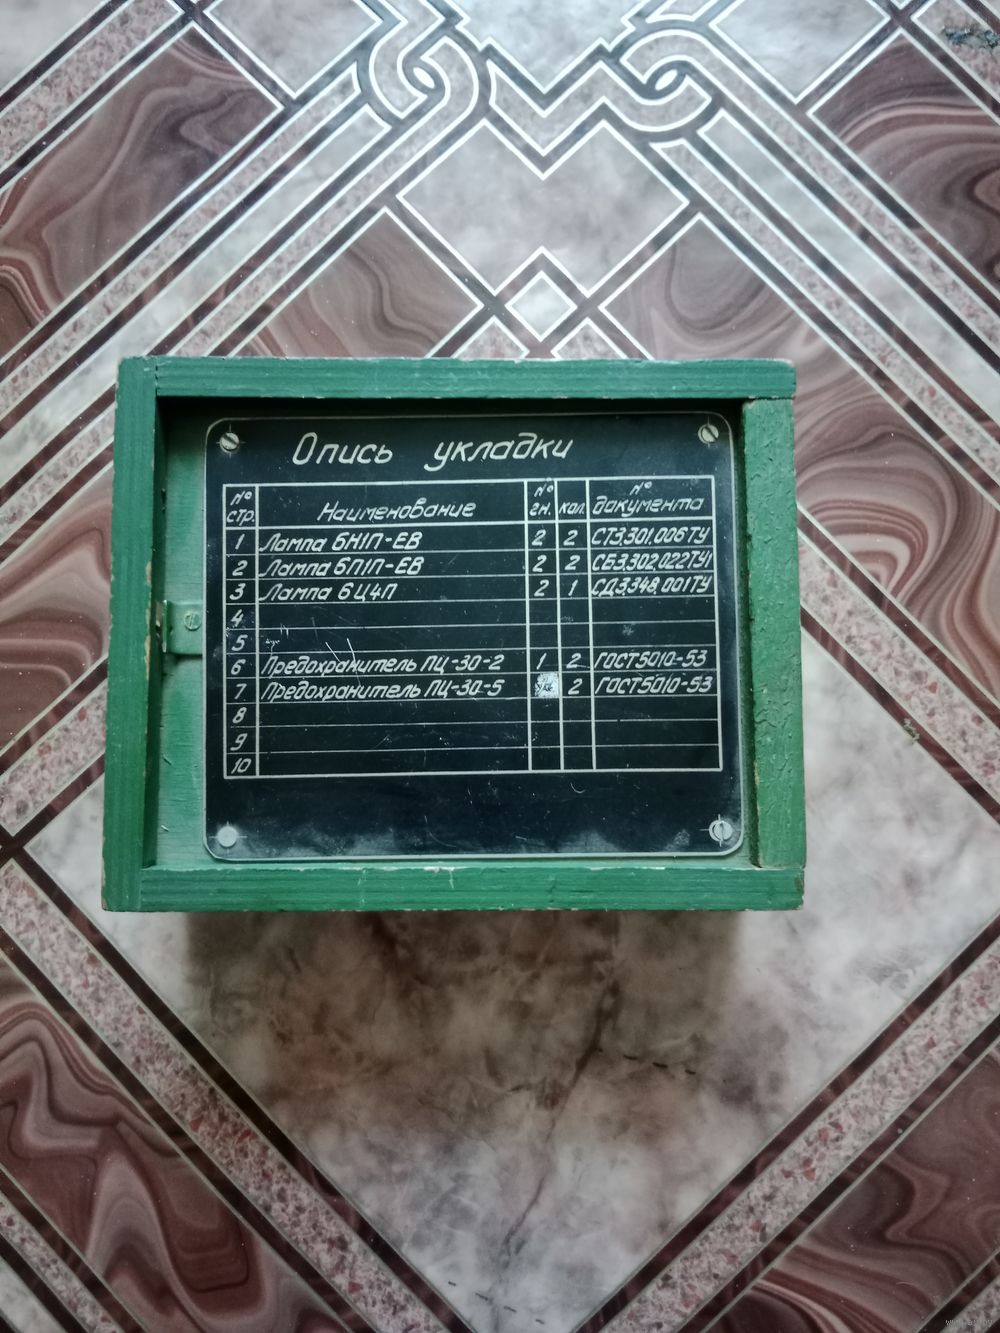 Опись укладки
№ стр. Наименование № гн. кол. № документа
1 Лампа 6Н1П-ЕВ 2 2 СТ3.301.006ТУ
2 Лампа 6П1П-ЕВ 2 2 СБ3.302.022ТУ1
3 Лампа 6Ц4П 2 1 СД3.348.001ТУ
4
5
6 Предохранитель ПЦ-30-2 1 2 ГОСТ5010-53
7 Предохранитель ПЦ-30-5 2 ГОСТ5010-53
8
9
10